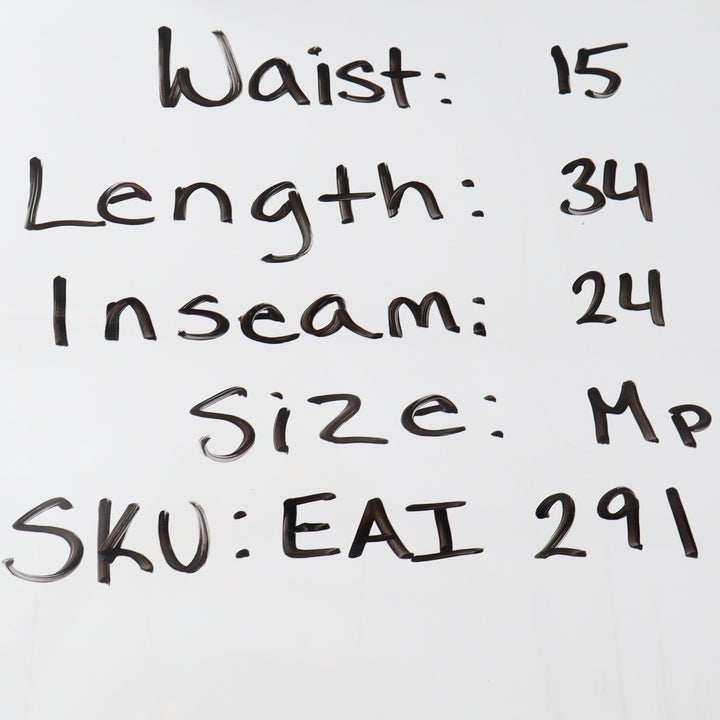 Waist: 15
Length: 34
Inseam: 24
Size: Mp
SKU: EAI 291